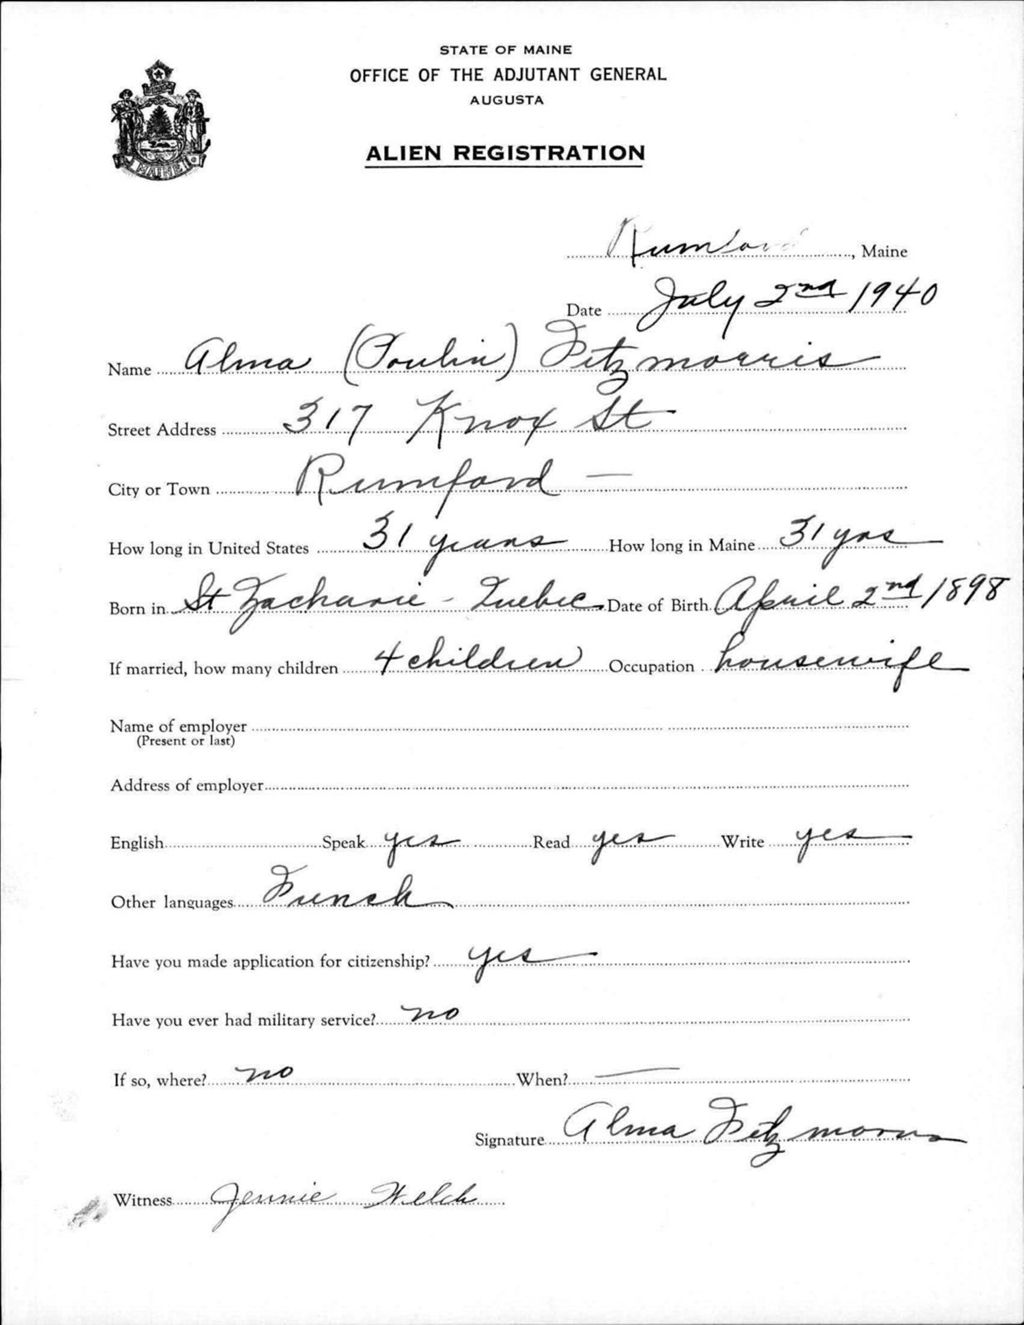 STATE OF MAINE
OFFICE OF THE ADJUTANT GENERAL
AUGUSTA
ALIEN REGISTRATION
MAINE
Rumford, Maine
Date July 2nd 1940
Name Alma (Poulin) Fitzmorris
Street Address 317 Knox St
City or Town Rumford —
How long in United States 31 years How long in Maine 31 yrs
Born in St Zacharie - Quebec Date of Birth April 2nd 1898
If married, how many children 4 children Occupation housewife
Name of employer
(Present or last)
Address of employer
English Speak yes Read yes Write yes
Other languages French
Have you made application for citizenship? yes
Have you ever had military service? no
If so, where? no When? —
Signature Alma Fitzmorris
Witness Jennie Welch